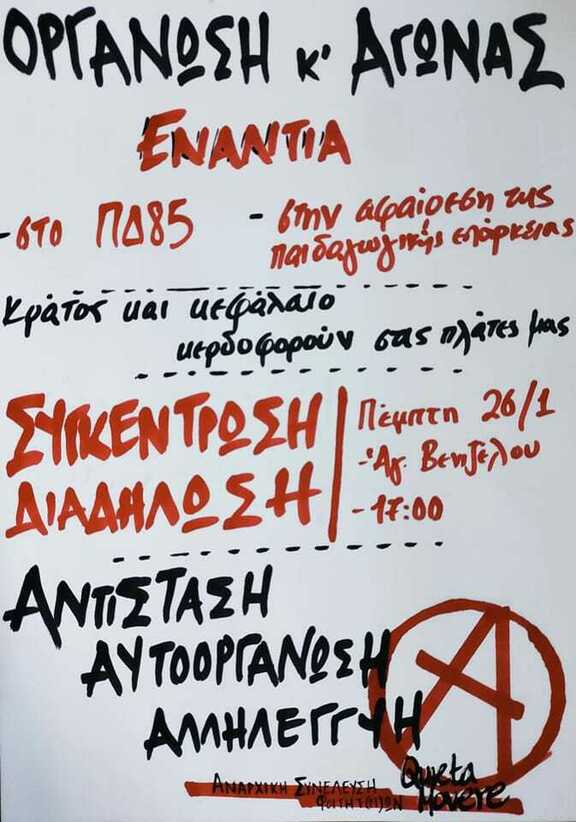 ΟΡΓΑΝΩΣΗ κ' ΑΓΩΝΑΣ
ΕΝΑΝΤΙΑ
-στο ΠΔ85
- στην αφαίρεση της
παιδαγωγικής επάρκειας
Κράτος και κεφάλαιο
κερδοφορούν στις πλάτες μας
ΣΥΓΚΕΝΤΡΩΣΗ
ΔΙΑΔΗΛΩΣΗ
Πέμπτη 26/1
-Άγ. Βενιζέλου
-17:00
ΑΝΤΙΣΤΑΣΗ
ΑΥΤΟΟΡΓΑΝΩΣΗ
ΑΛΛΗΛΕΓΓΥΗ
ΑΝΑΡΧΙΚΗ ΣΥΝΕΛΕΥΣΗ
ΦΟΙΤΗΤ(ΡΙ)ΩΝ
Quieta
Movere